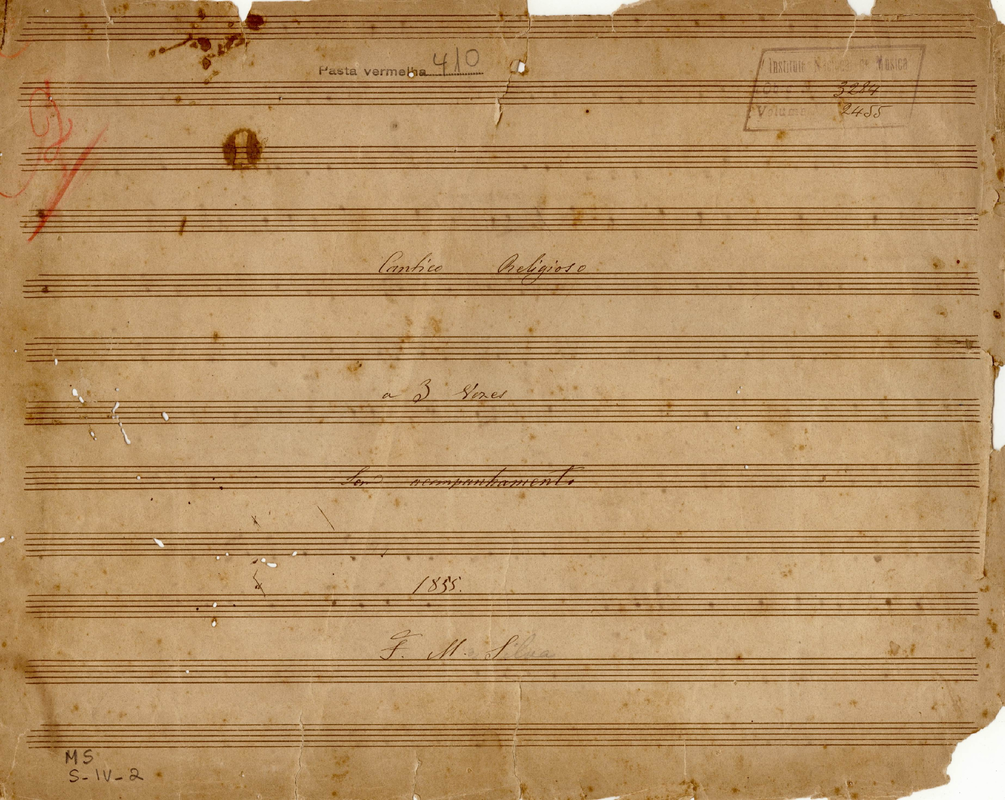 Pasta vermelha 410
Instituto Nacional de Musica
3284
Volume 2455
Cantico Religioso
a 3 Vozes
acompanhamento
1855.
F. M. Silva
MS
S-IV-2